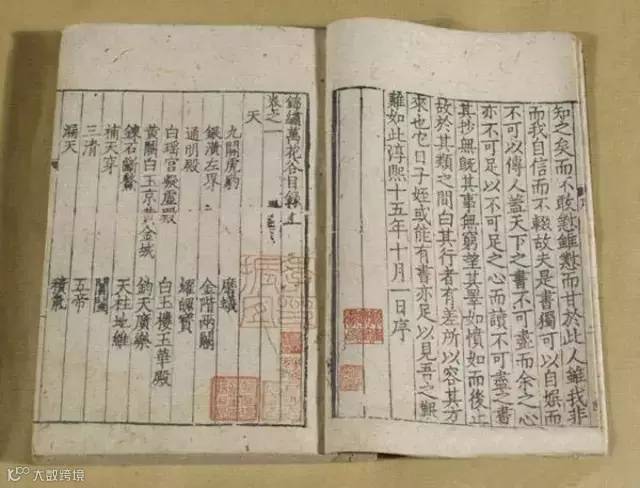 知之矣而不敢愆雖愆而甘於此人雖我非
而我自信而不輟故夫是書獨可以自娛而
不可以傳人蓋天下之書不可盡而余之心
亦不可足以不可足之心而讀不可盡之書
其抄無既其事無窮望其畢如憤如而後止
故於其類之間白其行者有差所以容其方
來也它日子姪或能有書亦足以見吾之艱
難如此淳熙十五年十月一日序
錦繡萬花谷目錄上
卷之一
天
九關虎豹 磨蟻
銀潢左界 金階兩闕
通明殿 耀魄寶
白瑤宮凝虛殿 白玉樓玉華殿
黃關白玉京黃金城 鈞天廣樂
鍊石斷鼇 天柱地維
補天穿 閶闔
三清 五帝
漏天 積氣
大数跨境